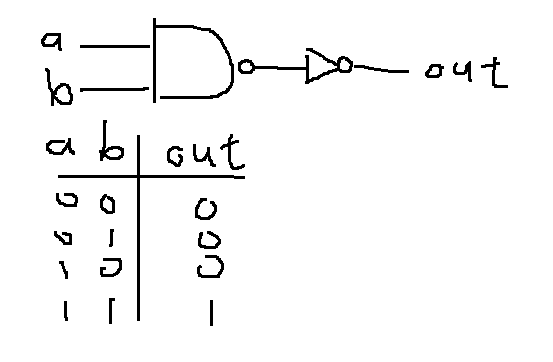 a
b out
a b out
0 0 0
0 1 0
1 0 0
1 1 1